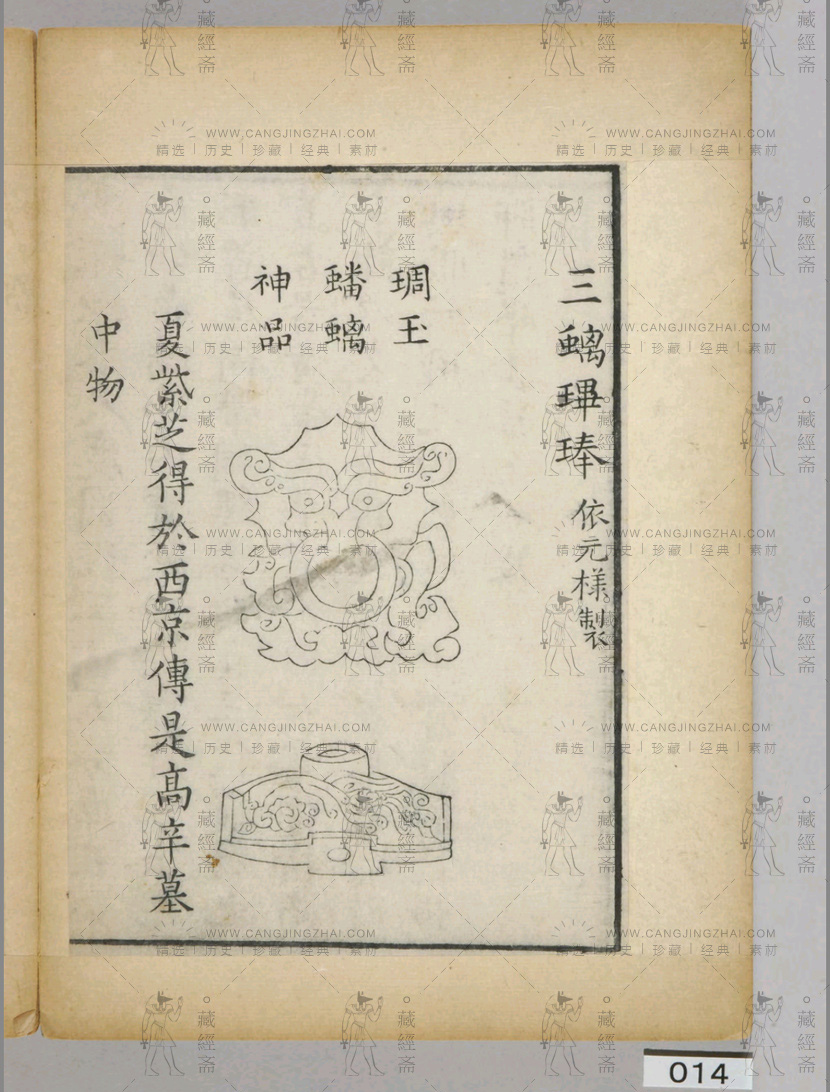 三螭琕琫 依元樣製
琱玉
蟠螭
神品
夏紫芝得於西京傳是高辛墓
中物
014
WWW.CANGJINGZHAI.COM
精选 | 历史 | 珍藏 | 经典 | 素材
藏經斋